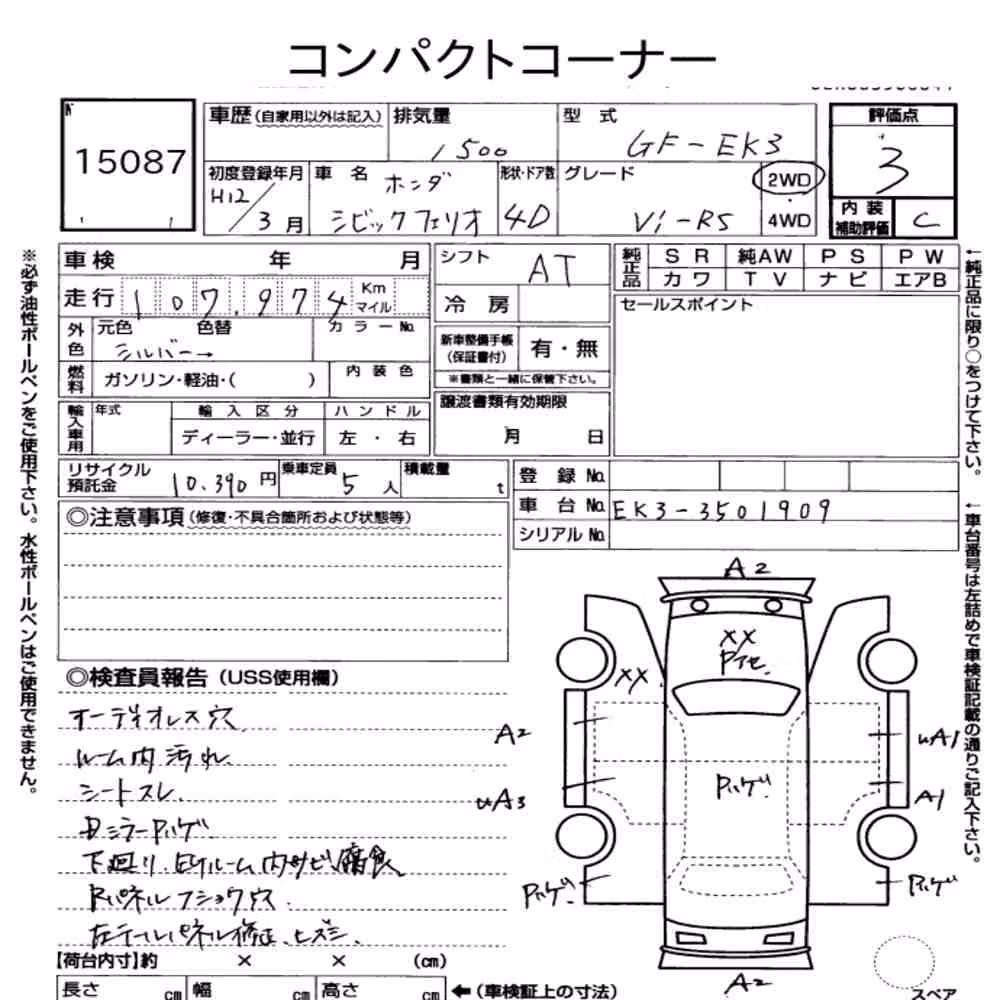 コンパクトコーナー
№
15087
車歴 (自家用以外は記入) 排気量 1500
型式 GF-EK3
評価点 3
初度登録年月 H12/3月
車名 ホンダ シビックフェリオ
形状・ドア数 4D
グレード Vi-RS
2WD
4WD
内装補助評価 C
※必ず油性ボールペンをご使用下さい。水性ボールペンはご使用できません。
車検 年 月
走行 107,974 Km マイル
外色 元色 色替 カラーNo.
シルバー→
燃料 ガソリン・軽油・( ) 内装色
輸入車用 年式 輸入区分 ハンドル
ディーラー・並行 左・右
シフト AT
冷房
新車整備手帳 (保証書付) 有・無
※書類と一緒に保管下さい。
譲渡書類有効期限
月 日
純正品 SR 純AW PS PW
カワ TV ナビ エアB
セールスポイント
←純正品に限り○をつけて下さい。
←車台番号は左詰めで車検証記載の通りご記入下さい。
リサイクル預託金 10.390円 乗車定員 5人 積載量 t
登録No.
車台No. EK3-3501909
シリアルNo.
◎注意事項 (修復・不具合箇所および状態等)
◎検査員報告 (USS使用欄)
オーディオレス穴
ルーム内汚れ
シートスレ.
Dミラー
下廻り、
内サビ腐食
Rパネル
穴
左テールパネル修正、ヒズミ.
A2
XX
XX
A2
A3
A1
A1
A2
【荷台内寸】約 × × (cm)
長さ cm 幅 cm 高さ cm ←(車検証上の寸法)
スペア